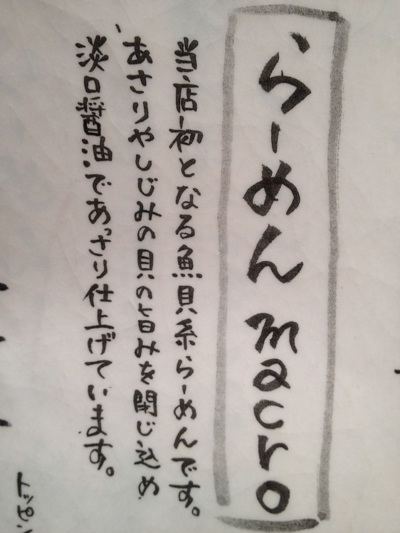 らーめん macro
当店初となる魚貝系らーめんです。
あさりやしじみの貝の旨みを閉じ込め
淡口醤油であっさり仕上げています。
トッピン